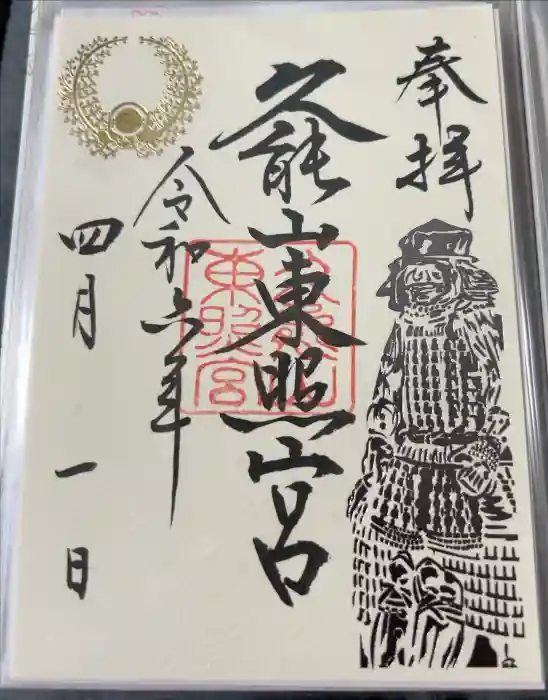 奉拝
久能山東照宮
令和六年
四月一日
久能山
東照宮